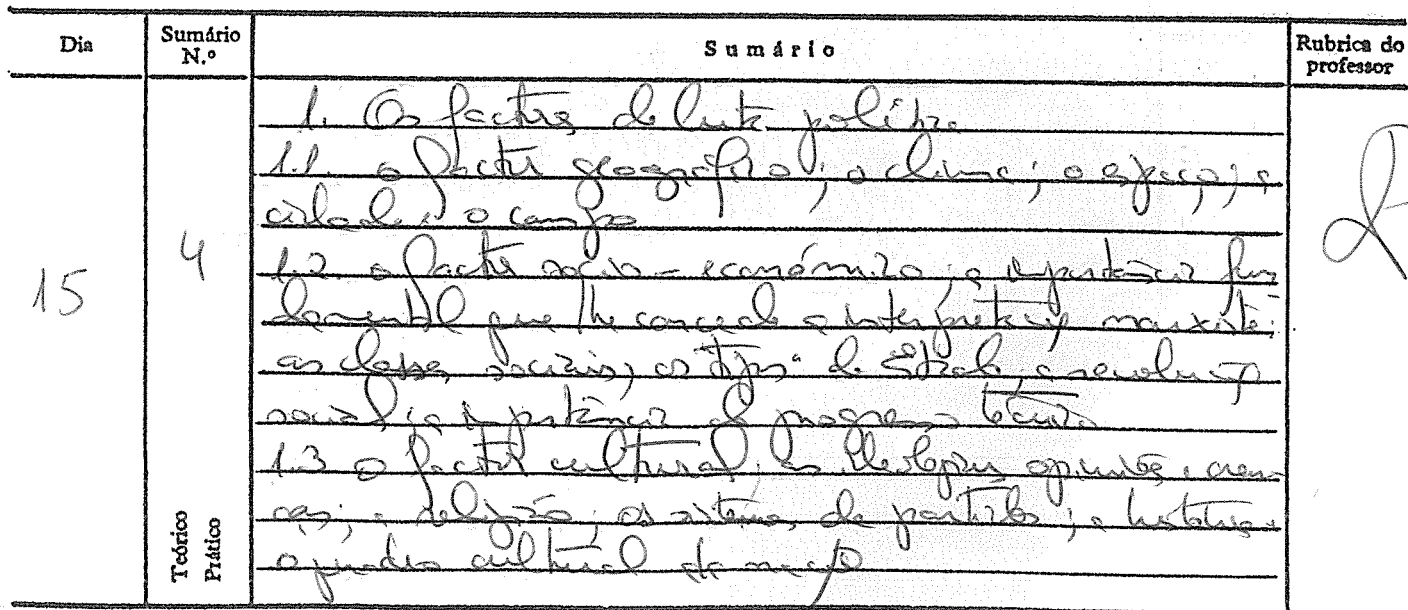 Dia
Sumário N.º
Sumário
Rubrica do professor
15
4
Teórico
Prático
1. Os factores de luta política
1.1. o factor geográfico; o clima; o espaço; a
cidade e o campo
1.2. o factor socio-económico; a importância fun
damental que lhe concede a interpretação marxista:
as classes sociais; os tipos de Estado, a revolução
social; a importância do progresso técnico
1.3 o factor cultural: as ideologias opiniões e cren
ças; a religião; os sistemas de partidos; a história e
o quadro cultural da nação